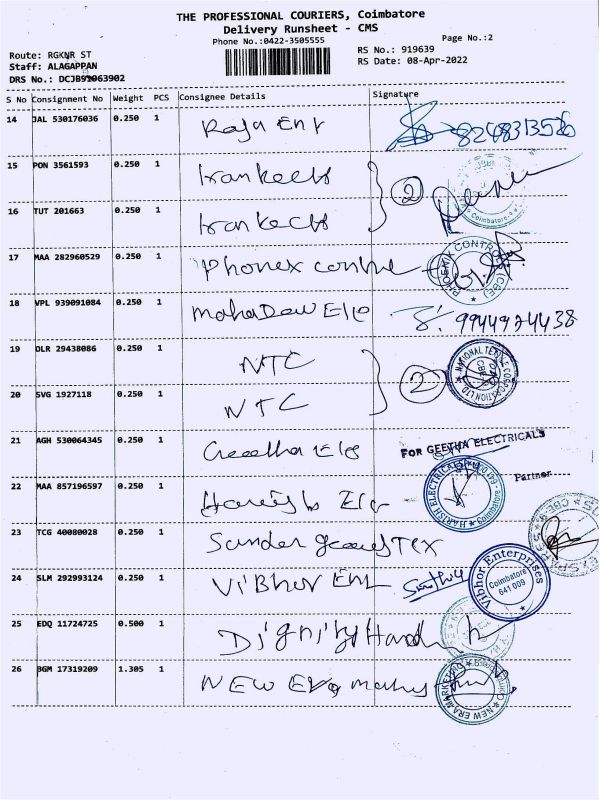 THE PROFESSIONAL COURIERS, Coimbatore
Delivery Runsheet - CMS
Phone No.:0422-3505555
Page No.:2
Route: RGKNR ST
RS No.: 919639
Staff: ALAGAPPAN
RS Date: 08-Apr-2022
DRS No.: DCJB91063902
S No Consignment No Weight PCS Consignee Details Signature
14 JAL 530176036 0.250 1 Raja Ent 8248313520
15 PON 3561593 0.250 1
2
16 TUT 201663 0.250 1
Coimbatore
17 MAA 282960529 0.250 1 Phonex PHOENIX CONTROLS (CBE)
18 VPL 939091084 0.250 1 MahaDev Ele 9944924438
19 DLR 29438086 0.250 1 NTC
2 NATIONAL TEXTILE CORPORATION LTD
20 SVG 1927118 0.250 1 NTC
21 AGH 530064345 0.250 1 Geetha Ele FOR GEETHA ELECTRICALS
Partner
22 MAA 857196597 0.250 1 Harish Ele HARISH ELECTRICAL Coimbatore
23 TCG 40080028 0.250 1 Sunder Tex
24 SLM 292993124 0.250 1 ViBhor Ent Vibhor Enterprises Coimbatore 641 009
25 EDQ 11724725 0.500 1 Dignity
26 BGM 17319209 1.305 1 NEW ERA NEW ERA MARKETING